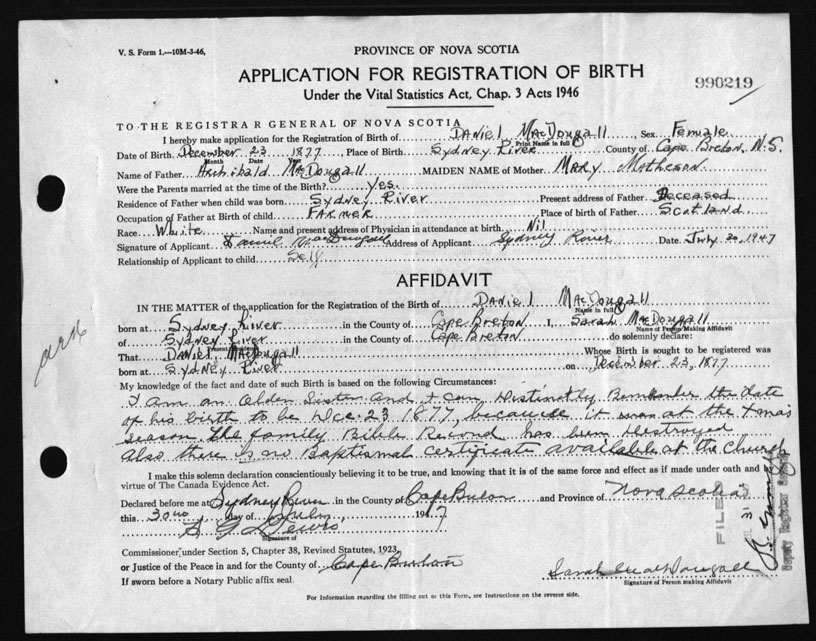 V. S. Form 1.—10M-3-46,
PROVINCE OF NOVA SCOTIA
APPLICATION FOR REGISTRATION OF BIRTH
990219
Under the Vital Statistics Act, Chap. 3 Acts 1946
TO THE REGISTRAR GENERAL OF NOVA SCOTIA
I hereby make application for the Registration of Birth of Daniel MacDougall Sex Female
Print Name in full
Date of Birth December 23 1877 Place of Birth Sydney River County of Cape Breton, N.S.
Month Date Year
Name of Father Archibald MacDougall MAIDEN NAME of Mother Mary Matheson
Were the Parents married at the time of the Birth? Yes.
Residence of Father when child was born Sydney River Present address of Father Deceased
Occupation of Father at Birth of child Farmer Place of birth of Father Scotland.
Race White Name and present address of Physician in attendance at birth Nil
Signature of Applicant Daniel MacDougall Address of Applicant Sydney River Date July 30, 1947
Relationship of Applicant to child Self
AFFIDAVIT
IN THE MATTER of the application for the Registration of the Birth of Daniel MacDougall
Name in full
born at Sydney River in the County of Cape Breton I, Sarah MacDougall
Name of Person Making Affidavit
of Sydney River in the County of Cape Breton do solemnly declare:
Present Residence
That Daniel MacDougall Whose Birth is sought to be registered was
born at Sydney River on December 23, 1877
My knowledge of the fact and date of such Birth is based on the following Circumstances:
I am an older Sister and I can Distinctly Remember the date
of his birth to be Dce. 23 1877, because it was at the Xmas
season, The family Bible Record has been Destroyed
Also there is no Baptismal certificate available at the Church
I make this solemn declaration conscientiously believing it to be true, and knowing that it is of the same force and effect as if made under oath and by
virtue of The Canada Evidence Act.
Declared before me at Sydney River in the County of Cape Breton and Province of Nova Scotia
this day of July 1947
Signature of
Commissioner, under Section 5, Chapter 38, Revised Statutes, 1923,
or Justice of the Peace in and for the County of Cape Breton
If sworn before a Notary Public affix seal.
Sarah MacDougall
Signature of Person making Affidavit
For Information regarding the filling out of this Form, see Instructions on the reverse side.
FILED
31
Deputy Registrar